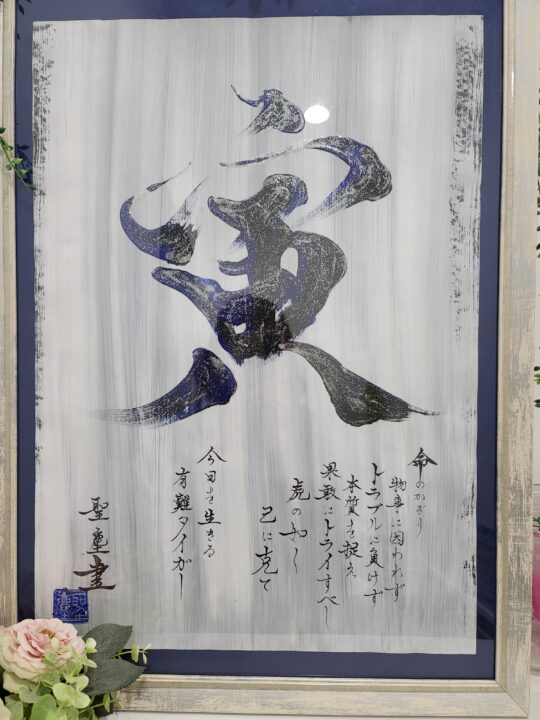 寅
命のかぎり
物事に囚われず
トラブルに負けず
本質を捉え
果敢にトライすべし
虎の如く
己に克て
今日を生きる
有難タイガー
聖塵書